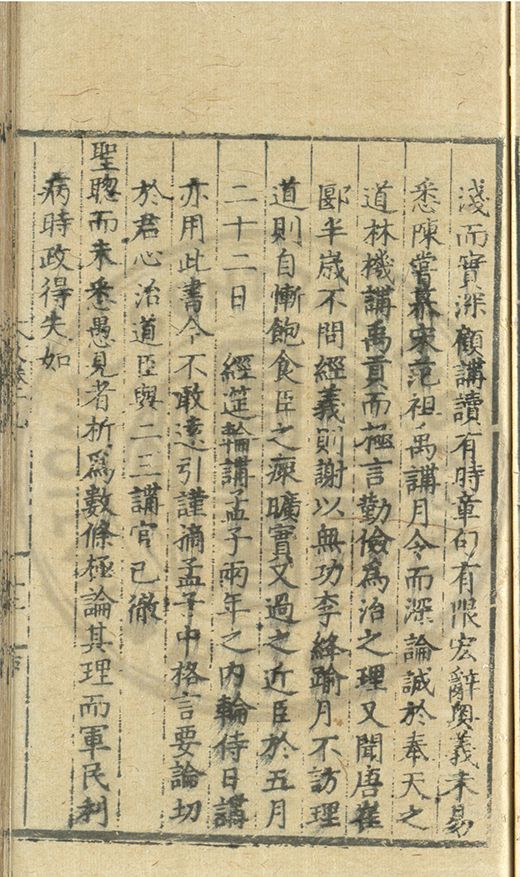 淺而實深顧講讀有時章句有限宏辭奧義未易
悉陳嘗慕宋范祖禹講月令而深論誠於奉天之
道林機講禹貢而極言勤儉為治之理又聞唐崔
郾半歲不問經義則謝以無功李絳踰月不訪理
道則自慚飽食臣之瘝曠實又過之近臣於五月
二十二日　經筵輪講孟子兩年之內輪侍日講
亦用此書今不敢遠引謹摘孟子中格言要論切
於君心治道臣與二三講官已徹
聖聰而未悉愚見者析為數條極論其理而軍民利
病時政得失如